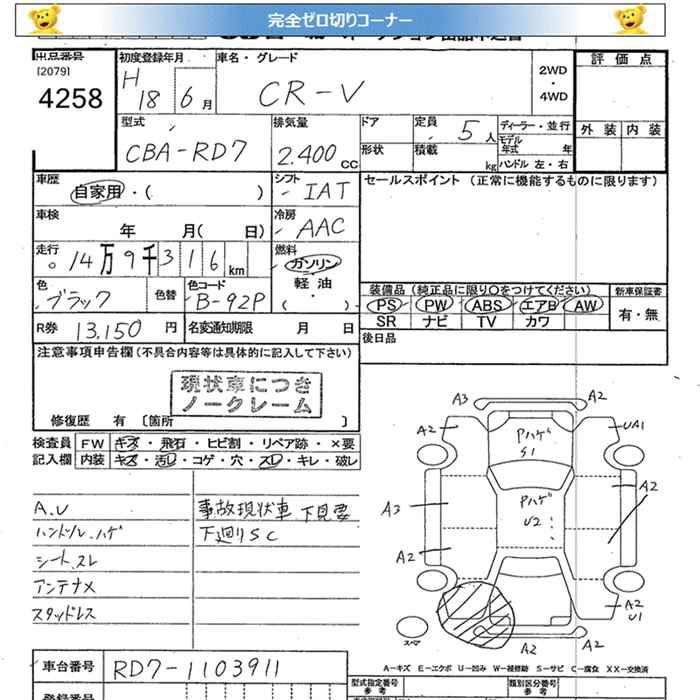 完全ゼロ切りコーナー
出品番号 初度登録年月 車名・グレード 2WD・4WD 評価点
[2079]
4258
H 18 6月 CR-V
外装 内装
型式 排気量 ドア 定員 5人 ディーラー・並行
CBA-RD7 2.400CC 形状 積載 kg モデル年式 年
ハンドル 左・右
車歴 シフト セールスポイント (正常に機能するものに限ります)
自家用・( ) IAT
車検 年 月( 日) 冷房 AAC
走行 14万9千316km 燃料 ガソリン
軽油
( ・ )
色 ブラック 色替 色コード B-92P
装備品 (純正品に限り○をつけてください) 新車保証書
PS PW ABS エアB AW 有・無
SR ナビ TV カワ
R券 13,150円 名変通知期限 月 日
後日品
注意事項申告欄(不具合内容等は具体的に記入して下さい)
現状車につき
ノークレーム
修復歴 有 [箇所 ]
検査員 FW キズ・飛石・ヒビ割・リペア跡・×要
記入欄 内装 キズ・汚レ・コゲ・穴・スレ・キレ・破レ
A.U 事故現状車 下見要
ハンドル.ハゲ 下廻りSC
シート.スレ
アンテナメ
スタッドレス
A3 A2
A2 Pハゲ S1 UA1
A3 Pハゲ U2 A2
A2
A2 U1
A2 A2
スペア
A-キズ E-エクボ U-凹み W-補修跡 S-サビ C-腐食 XX-交換済
車台番号 RD7-1103911
型式指定番号 参考 類別区分番号 参考
登録番号